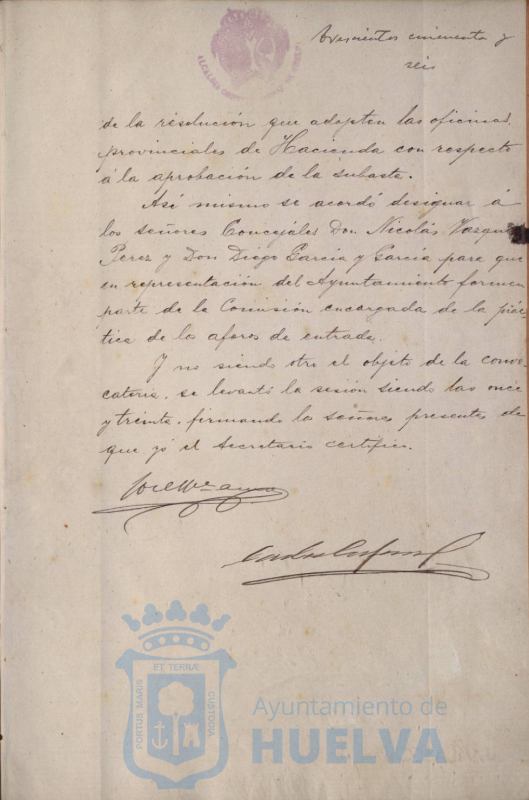 Trescientos cincuenta y
seis
de la resolución que adopten las oficinas
provinciales de Hacienda con respecto
á la aprobación de la subasta.
Así mismo se acordó designar á
los señores Concejales Don Nicolás Vazquez
Perez y Don Diego Garcia y Garcia para que
en representación del Ayuntamiento formen
parte de la Comisión encargada de la prác-
tica de los aforos de entrada.
Y no siendo otro el objeto de la convo-
catoria, se levantó la sesión siendo las once
y treinta, firmando los señores presentes de
que yó el Secretario certifico.
ET TERRÆ
PORTUS MARIS
CUSTODIA
Ayuntamiento de
HUELVA